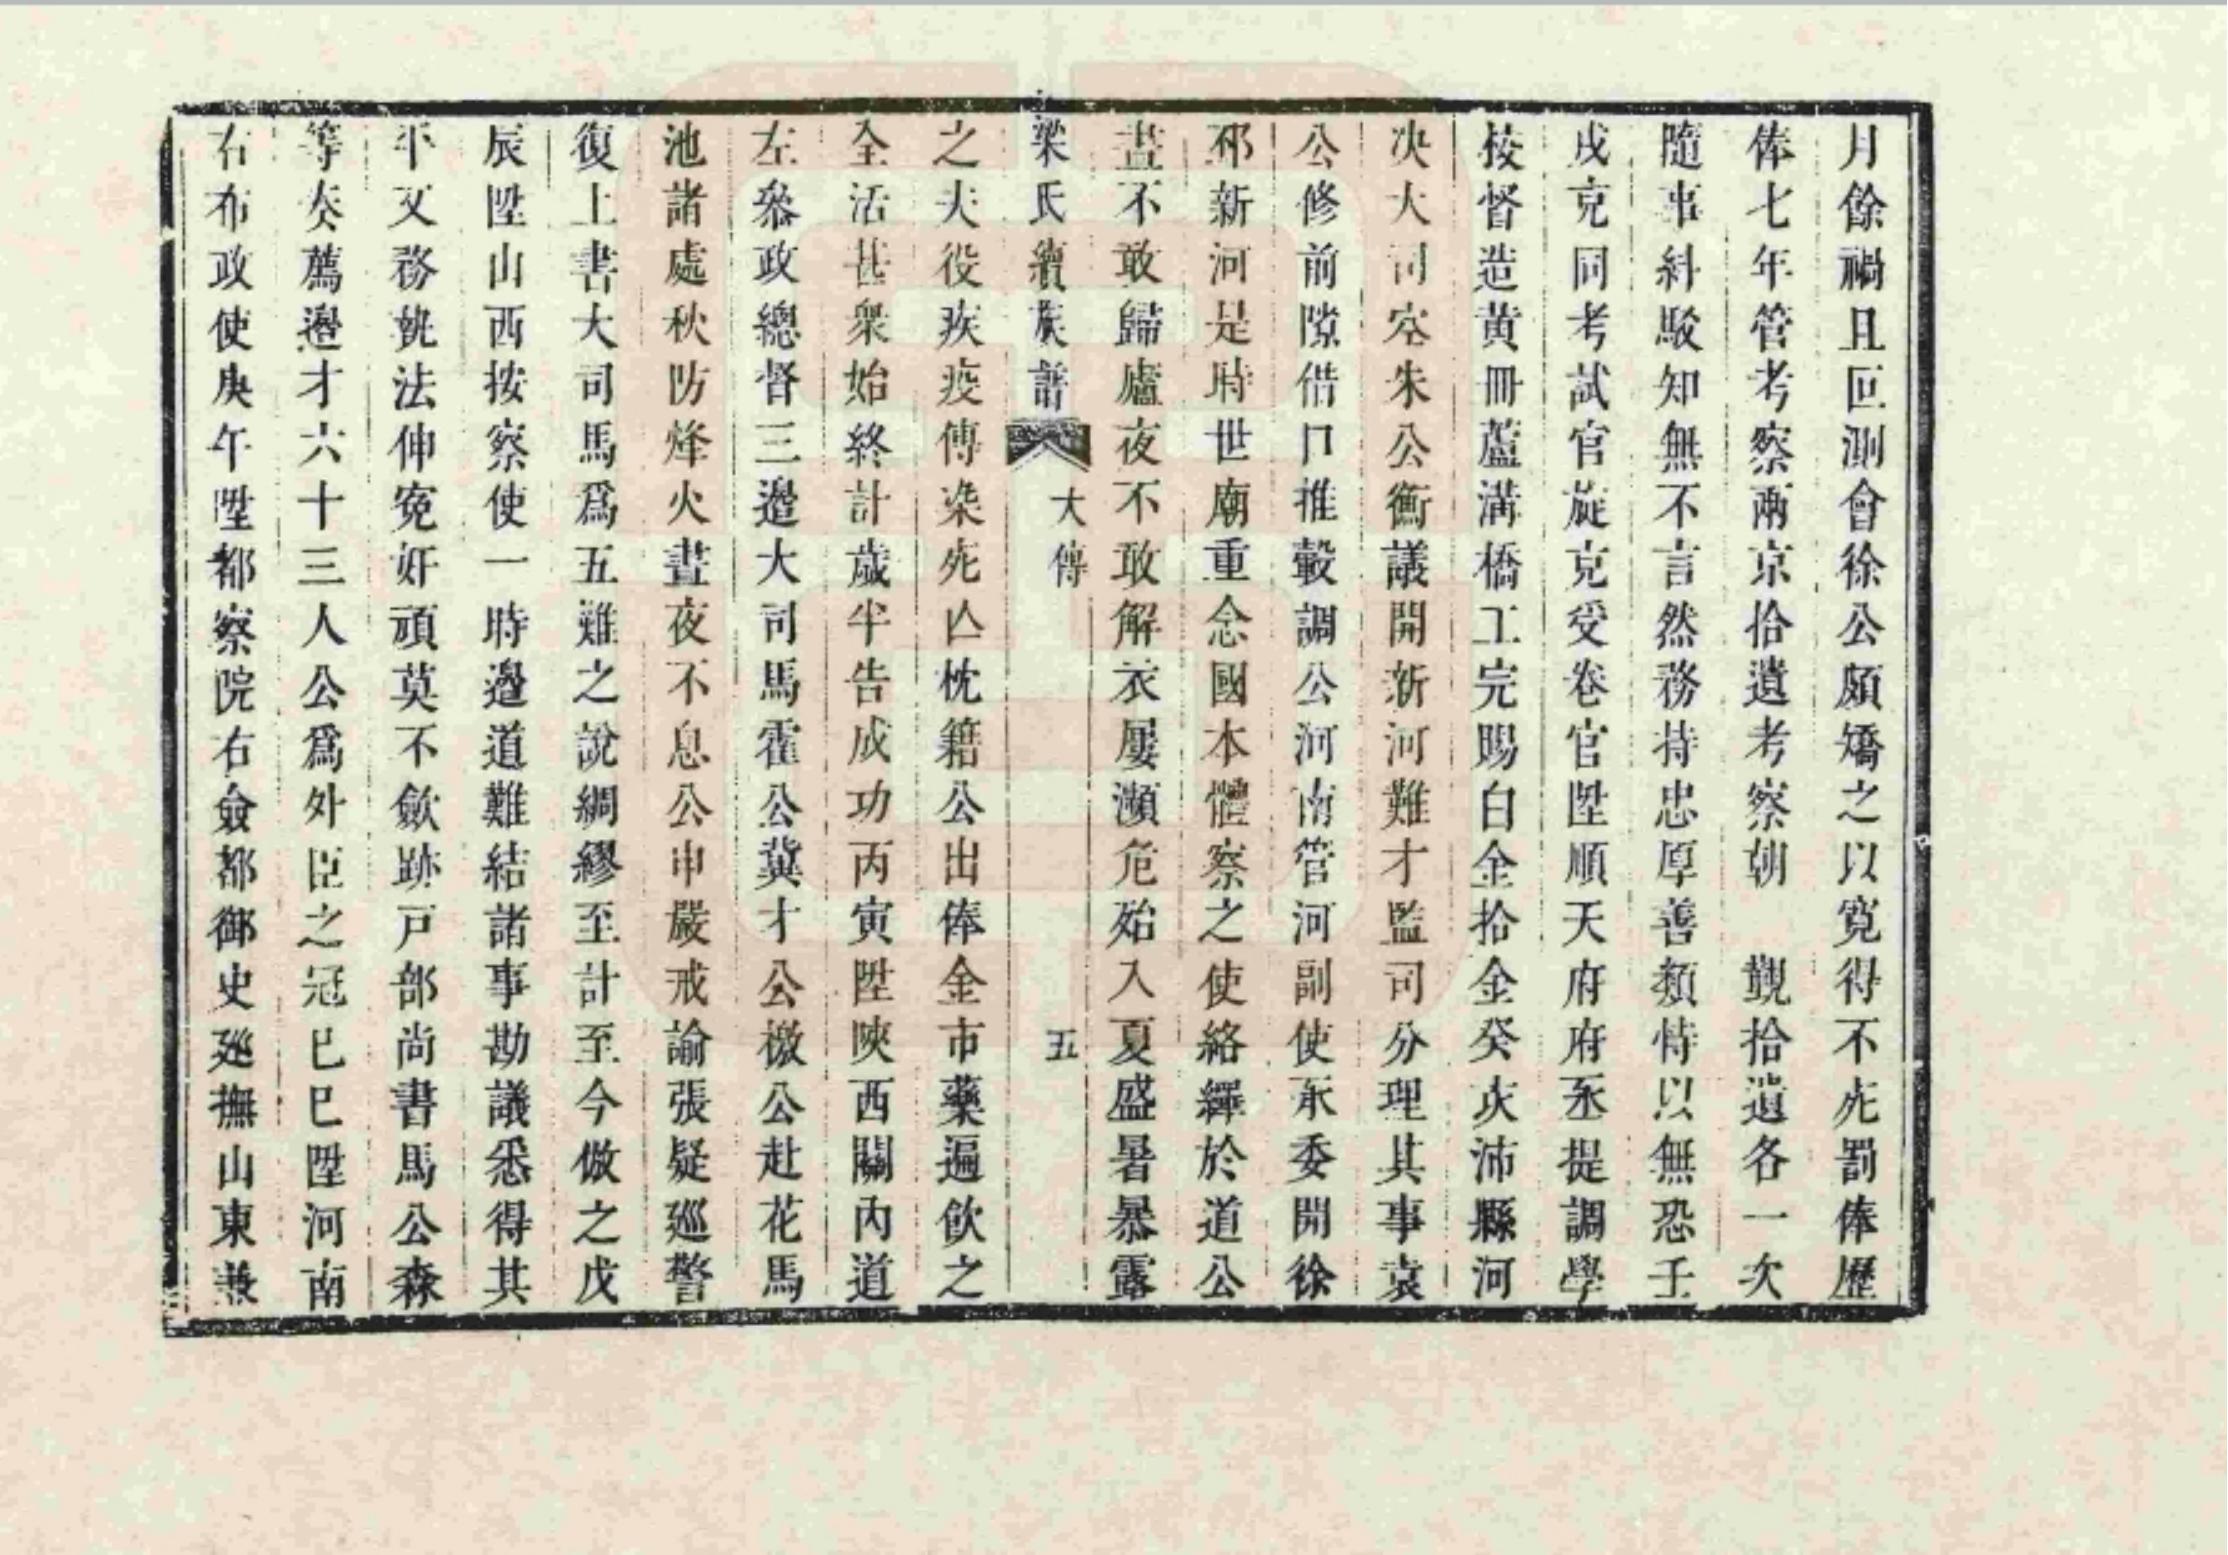 月餘禍且叵測會徐公頗矯之以寬得不死罰俸歷
俸七年管考察兩京拾遺考察朝　覲拾遺各一次
隨事糾駁知無不言然務持忠厚善類恃以無恐壬
戌充同考試官旋充受卷官陞順天府府丞提調學
校督造黃冊蘆溝橋工完賜白金拾金癸亥沛縣河
决大司空朱公衡議開新河難才監司分理其事袁
公修前隙借口推轂調公河南管河副使永委開徐
邳新河是時世廟重念國本體察之使絡繹於道公
晝不敢歸廬夜不敢解衣屢瀕危殆入夏盛暑暴露
梁氏續族譜　大傳　五
之夫役疾疫傳染死亾枕籍公出俸金市藥遍飲之
全活甚衆始終計歲半告成功丙寅陞陝西關內道
左叅政總督三邊大司馬霍公冀才公檄公赴花馬
池諸處秋防烽火晝夜不息公申嚴戒諭張疑廵警
復上書大司馬爲五難之說綢繆至計至今倣之戊
辰陞山西按察使一時邊道難結諸事勘議悉得其
平又務執法伸寃奸頑莫不歛跡戸部尚書馬公森
等奏薦邊才六十三人公爲外臣之冠巳巳陞河南
右布政使庚午陞都察院右僉都御史廵撫山東兼